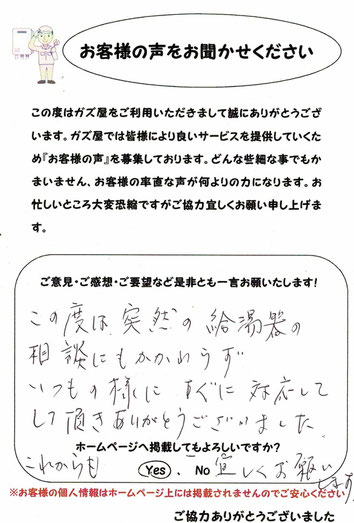 お客様の声をお聞かせください
この度はガズ屋をご利用いただきまして誠にありがとうござ
います。ガズ屋では皆様により良いサービスを提供していくた
め『お客様の声』を募集しております。どんな些細な事でもか
まいません、お客様の率直な声が何よりの力になります。お
忙しいところ大変恐縮ですがご協力宜しくお願い申し上げま
す。
ご意見・ご感想・ご要望など是非とも一言お願いいたします!
この度は突然の給湯器の
相談にもかかわらず
いつもの様にすぐに対応して
して頂きありがとうございました
ホームページへ掲載してもよろしいですか?
これからも
Yes . No
宜しくお願い
します
※お客様の個人情報はホームページ上には掲載されませんのでご安心ください
ご協力ありがとうございました